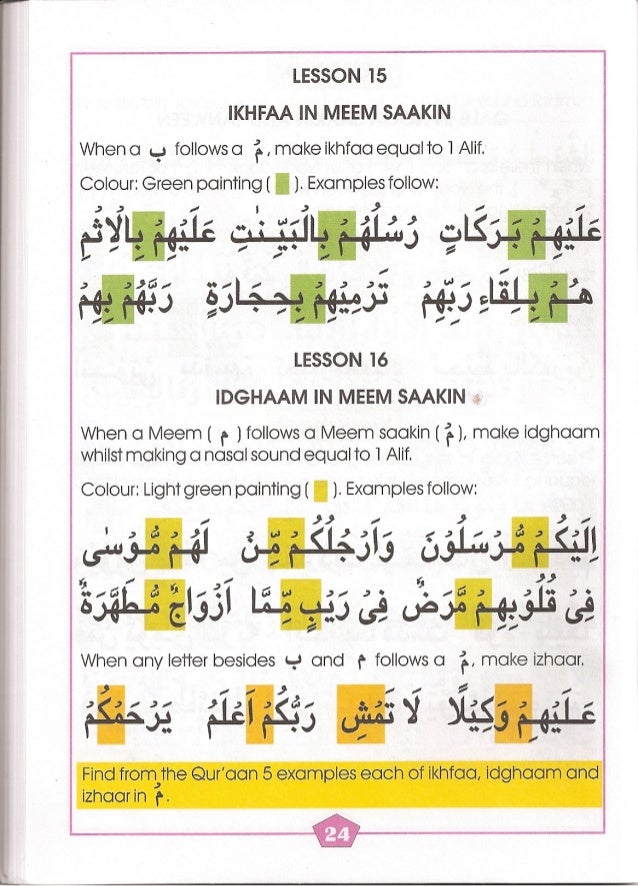 LESSON 15
IKHFAA IN MEEM SAAKIN
When a ب follows a مْ, make ikhfaa equal to 1 Alif.
Colour: Green painting ( ). Examples follow:
عَلَيْهِمْ بَرَكَاتٍ رُسُلُهُمْ بِالْبَيِّنٰتِ عَلَيْهِمْ بِالْاِثْمِ
هُمْ بِلِقَاءِ رَبِّهِمْ تَرْمِيْهِمْ بِحِجَارَةٍ رَبَّهُمْ بِهِمْ
LESSON 16
IDGHAAM IN MEEM SAAKIN
When a Meem ( م ) follows a Meem saakin ( مْ ), make idghaam
whilst making a nasal sound equal to 1 Alif.
Colour: Light green painting ( ). Examples follow:
اِلَيْكُمْ مُّرْسَلُوْنَ وَاَرْجُلُكُمْ مِّنْ لَهُمْ مُّوْسٰى
فِىْ قُلُوْبِهِمْ مَّرَضٌ فِىْ رَيْبٍ مِّمَّا اَزْوَاجٌ مُّطَهَّرَةٌ
When any letter besides ب and م follows a مْ, make izhaar.
عَلَيْهِمْ وَكِيْلًا لَا تَمْشِ رَبُّكُمْ اَعْلَمُ يَرْحَمْكُمْ
Find from the Qur'aan 5 examples each of ikhfaa, idghaam and
izhaar in مْ.
24